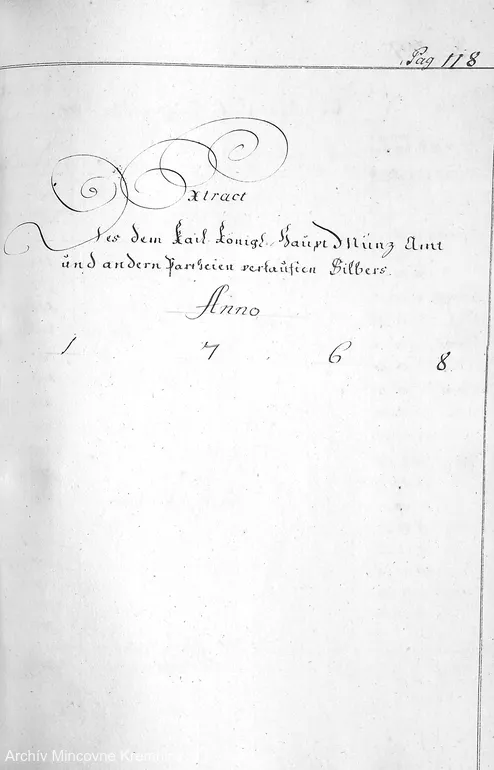 Pag 118
Extract
Des dem Kaiſ. Königl. Haupt Münz Amt
und andern Partheien verkauften Silbers.
Anno
1 7 6 8
Archiv Mincovne Kremnica